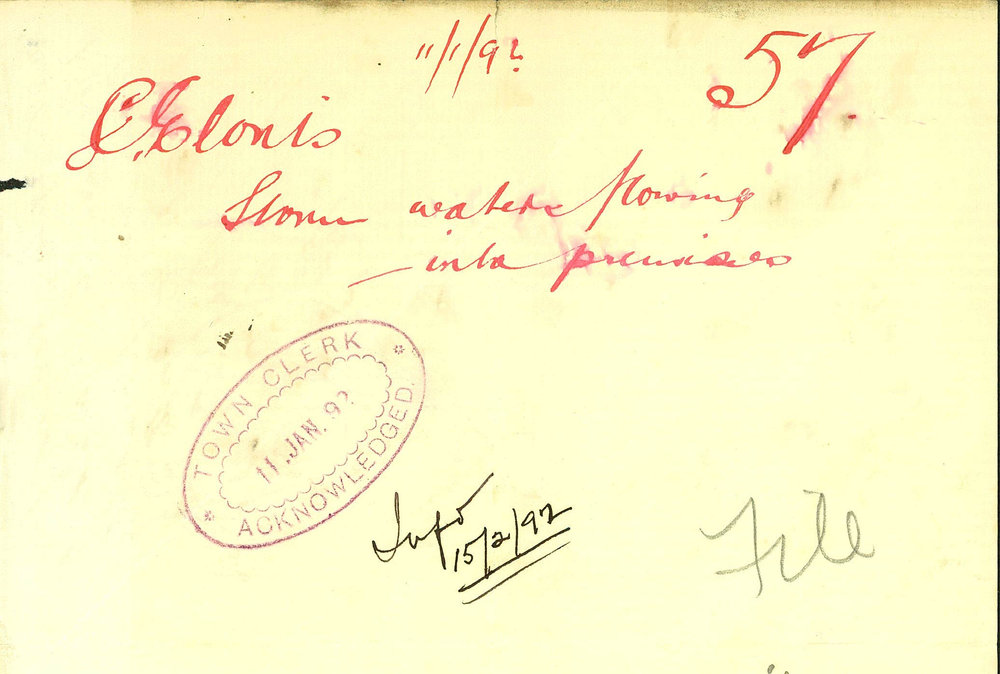 11/1/92
57.
C. Clonis
Storm water flowing
into premises
TOWN CLERK
11 .JAN. 92
ACKNOWLEDGED.
Info
15/2/92
File